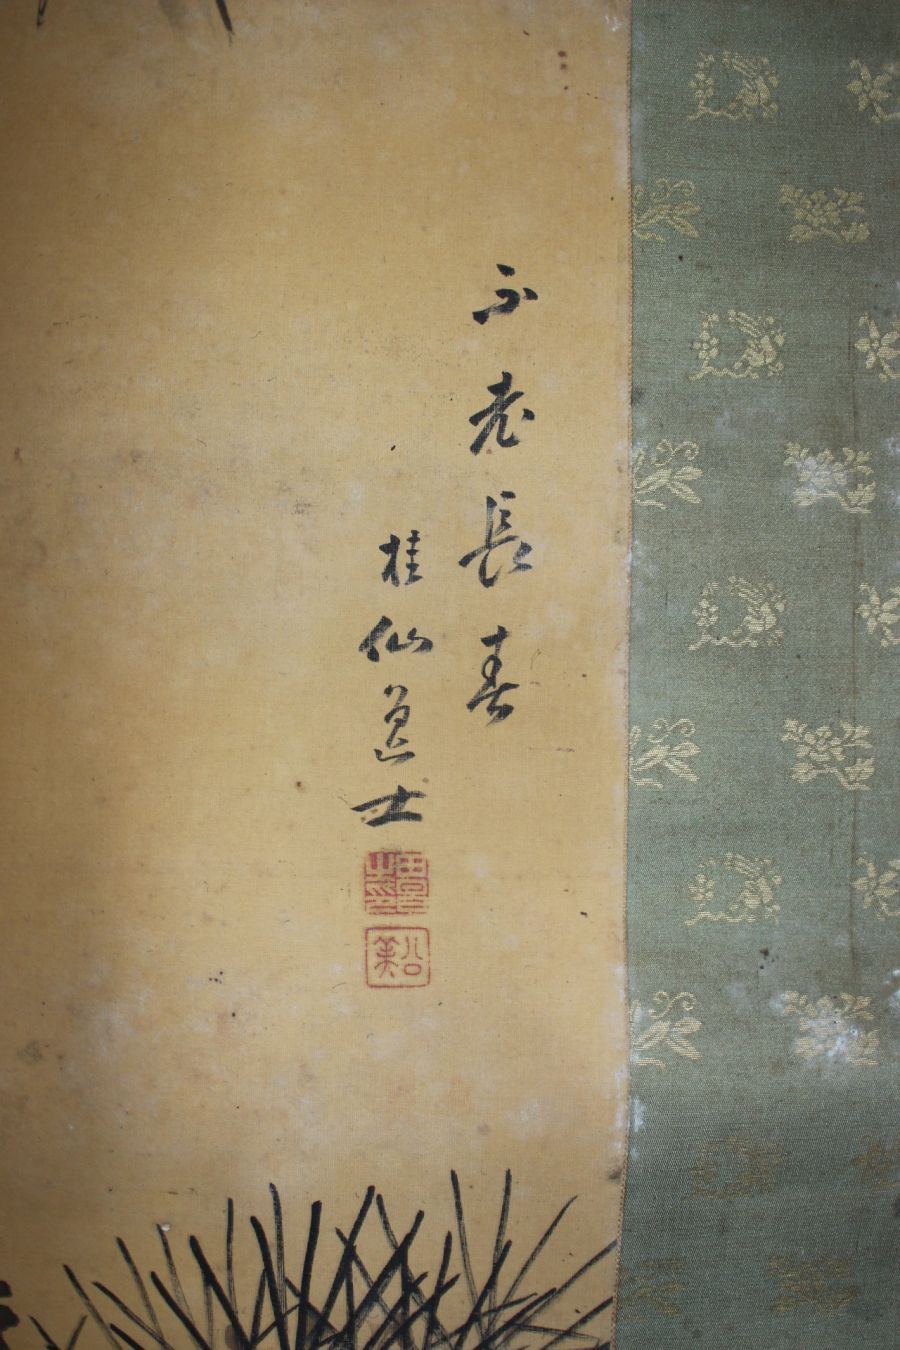 不老長春
桂仙道士